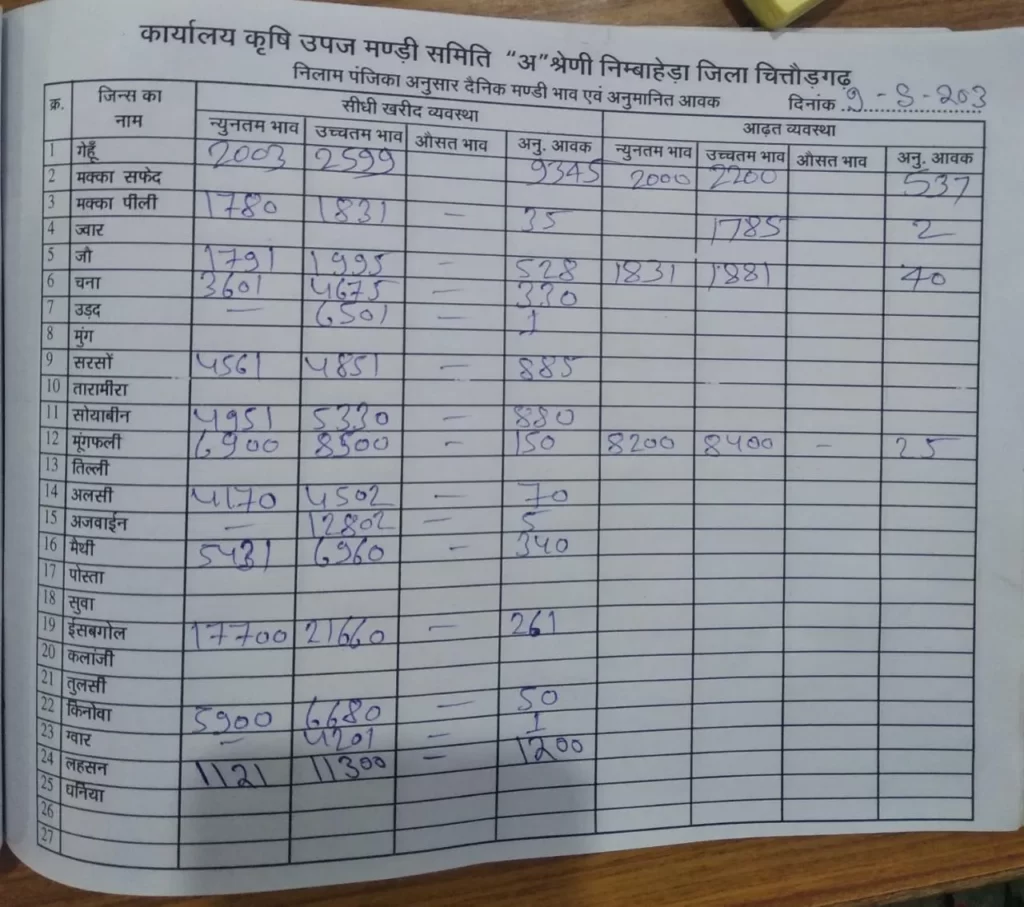 कार्यालय कृषि उपज मण्डी समिति "अ" श्रेणी निम्बाहेड़ा जिला चित्तौड़गढ़
निलाम पंजिका अनुसार दैनिक मण्डी भाव एवं अनुमानित आवक दिनांक 9-5-203
क्र. जिन्स का नाम सीधी खरीद व्यवस्था आढ़त व्यवस्था
न्युनतम भाव उच्चतम भाव औसत भाव अनु. आवक न्युनतम भाव उच्चतम भाव औसत भाव अनु. आवक
1 गेहूँ 2003 2599 9345 2000 2200 537
2 मक्का सफेद
3 मक्का पीली 1780 1831 — 35 1785 2
4 ज्वार
5 जौ 1791 1995 — 528 1831 1881 40
6 चना 3601 4675 — 330
7 उड़द — 6501 — 1
8 मुंग
9 सरसों 4561 4851 — 885
10 तारामीरा
11 सोयाबीन 4951 5330 — 880
12 मूंगफली 6900 8500 - 150 8200 8400 - 25
13 तिल्ली
14 अलसी 4170 4502 — 70
15 अजवाईन — 12802 — 5
16 मैथी 5431 6960 — 340
17 पोस्ता
18 सुवा
19 ईसबगोल 17700 21660 — 261
20 कलांजी
21 तुलसी
22 किनोवा 5900 6680 — 50
23 ग्वार — 4201 — 1
24 लहसन 1121 11300 — 1200
25 धनिया
26
27